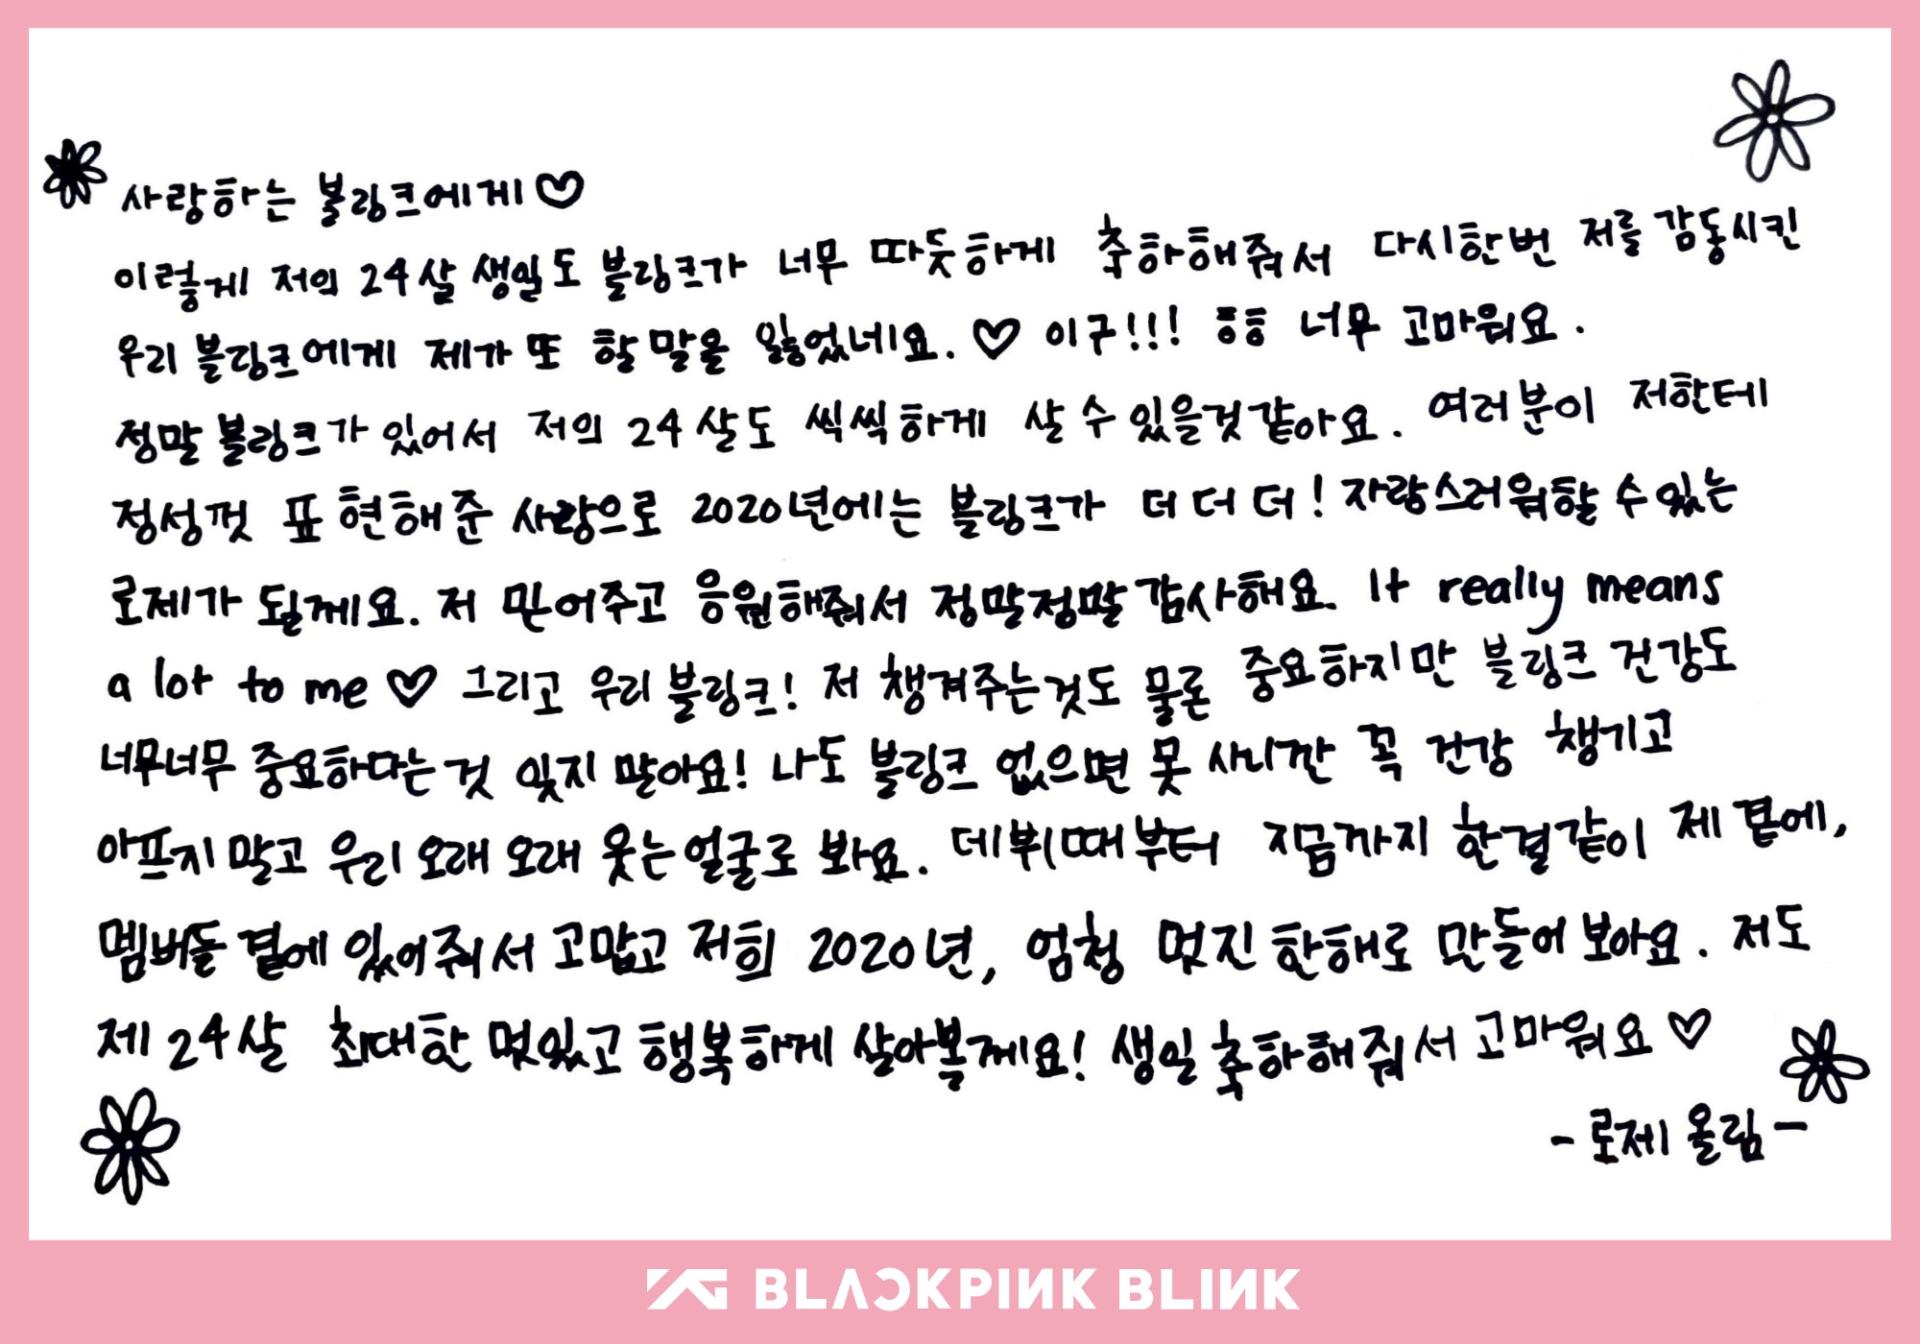 사랑하는 블링크에게♡
이렇게 저의 24살 생일도 블링크가 너무 따듯하게 축하해줘서 다시한번 저를 감동시킨
우리 블링크에게 제가 또 할말을 잃었네요. ♡ 이구!!! ㅎㅎ 너무 고마워요.
정말 블링크가 있어서 저의 24살도 씩씩하게 살 수 있을것같아요. 여러분이 저한테
정성껏 표현해준 사랑으로 2020년에는 블링크가 더 더 더! 자랑스러워할 수 있는
로제가 될게요. 저 믿어주고 응원해줘서 정말정말 감사해요. It really means
a lot to me ♡ 그리고 우리 블링크! 저 챙겨주는것도 물론 중요하지만 블링크 건강도
너무너무 중요하다는 것 잊지 말아요! 나도 블링크 없으면 못 사니깐 꼭 건강 챙기고
아프지 말고 우리 오래 오래 웃는 얼굴로 봐요. 데뷔때부터 지금까지 한결같이 제 곁에,
멤버들 곁에 있어줘서 고맙고 저희 2020년, 엄청 멋진 한해로 만들어 보아요. 저도
제 24살 최대한 멋있고 행복하게 살아볼께요! 생일 축하해줘서 고마워요♡
- 로제 올림 -
YG BLACKPINK BLINK